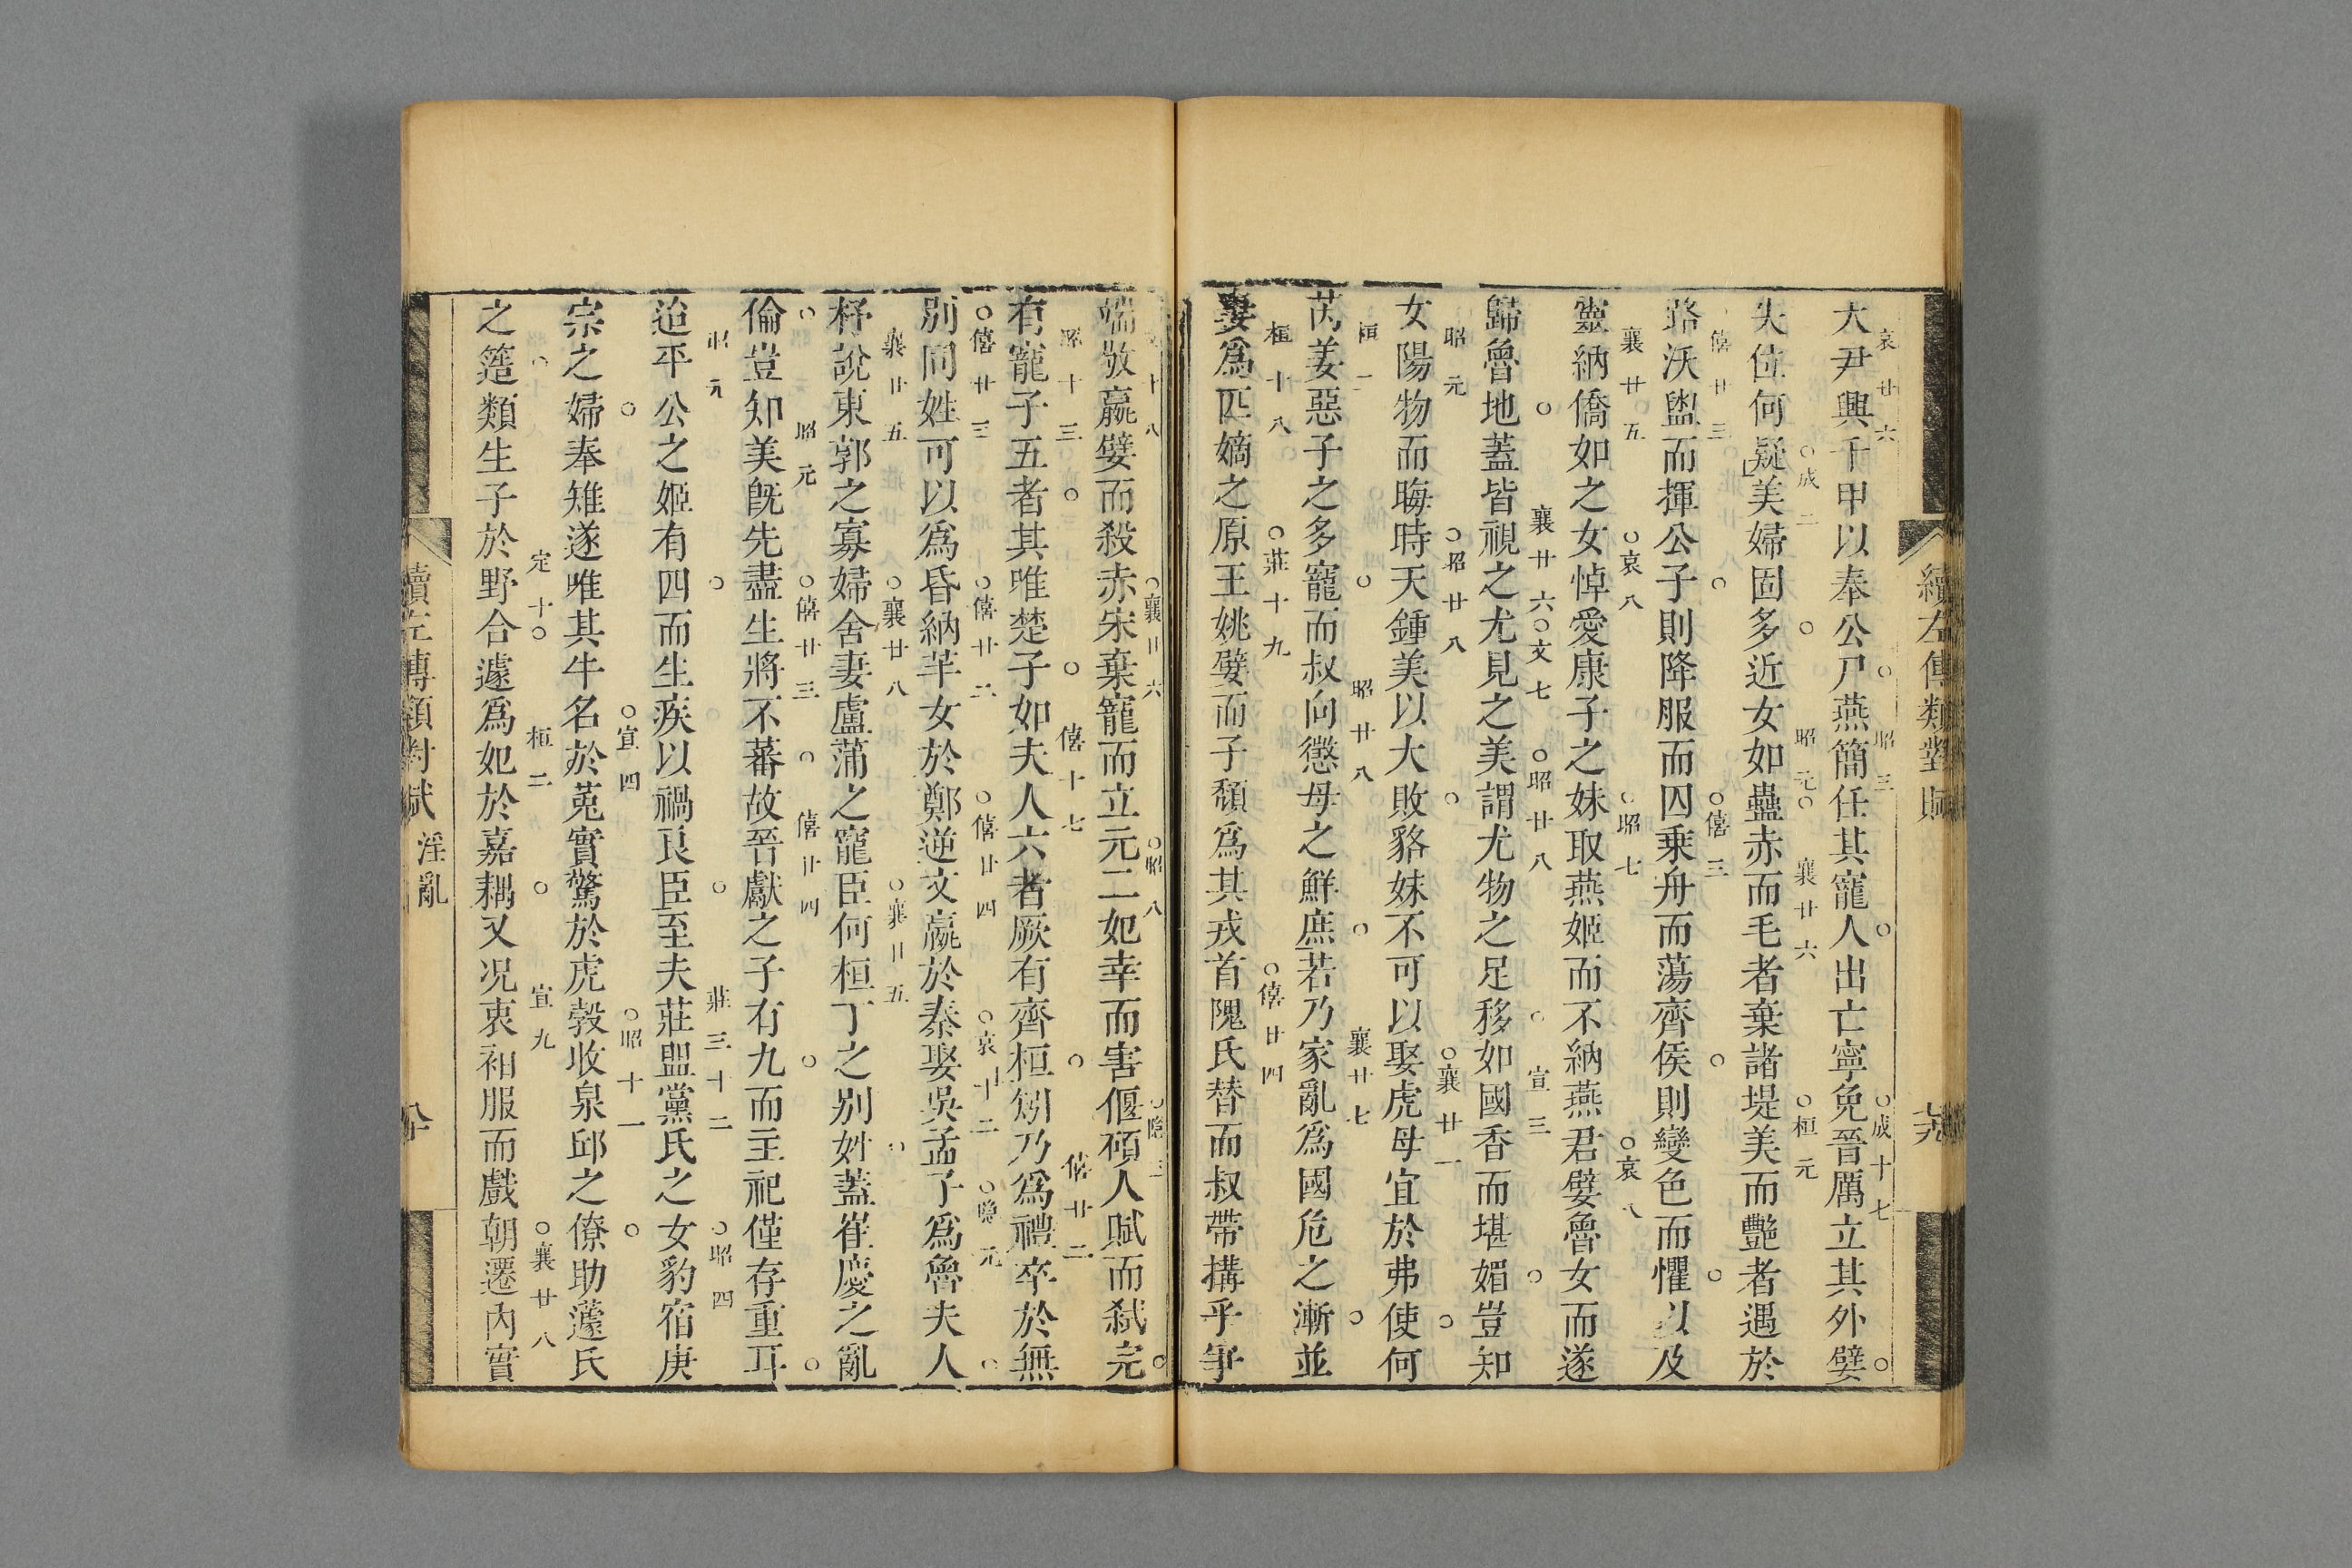 續左傳類對賦
大尹興千甲以奉公尸燕簡任其寵人出亡寧免晉厲立其外嬖
哀廿六 昭三 成十七
失位何疑美婦固多近女如蠱赤而毛者棄諸堤美而豔者遇於
成二 昭元 襄廿六 桓元
路沃盥而揮公子則降服而囚乗舟而蕩齊侯則變色而懼以及
僖廿三 僖三
靈納僑如之女悼愛康子之妹取燕姬而不納燕君嬖魯女而遂
襄廿五 哀八 昭七 哀八
歸魯地蓋皆視之尤見之美謂尤物之足移如國香而堪媚豈知
襄廿六 文七 昭廿八 宣三
女陽物而晦時天鍾美以大敗貉妹不可以娶虎母宜於弗使何
昭元 昭廿八 襄廿一
芮姜惡子之多寵而叔向懲母之鮮庶若乃家亂爲國危之漸並
桓 昭廿八 襄廿七
妻爲匹嫡之原王姚嬖而子頹爲其戎首隗氏替而叔帶搆乎爭
桓十八 莊十九 僖廿四
端敬嬴嬖而殺赤宋棄寵而立元二妃幸而害偃碩人賦而弑完
十八 襄廿六 昭八 隱三
有寵子五者其唯楚子如夫人六者厥有齊桓媰乃爲禮卒於無
昭十三 僖十七 僖廿二
別同姓可以爲昏納芊女於鄭逆文嬴於秦娶吳孟子爲魯夫人
僖廿三 僖廿二 僖廿四 哀十二 隱元
杼說東郭之寡婦舍妻盧蒲之寵臣何桓丁之別姓蓋崔慶之亂
襄廿五 襄廿八 襄廿五
倫豈知美旣先盡生將不蕃故晉獻之子有九而主祀僅存重耳
昭元 僖廿三 僖廿四
迨平公之姬有四而生疾以禍良臣至夫莊盟黨氏之女豹宿庚
昭元 莊三十二 昭四
宗之婦奉雉遂唯其牛名於菟實驚於虎彀收泉邱之僚助薳氏
宣四 昭十一
之簉類生子於野合遽爲妃於嘉耦又况衷衵服而戲朝遷內實
定十 桓二 宣九 襄廿八
續左傳類對賦 淫亂